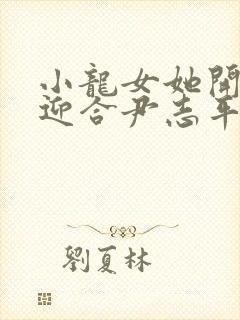 小龍女她開
迎合尹志平
劉夏林